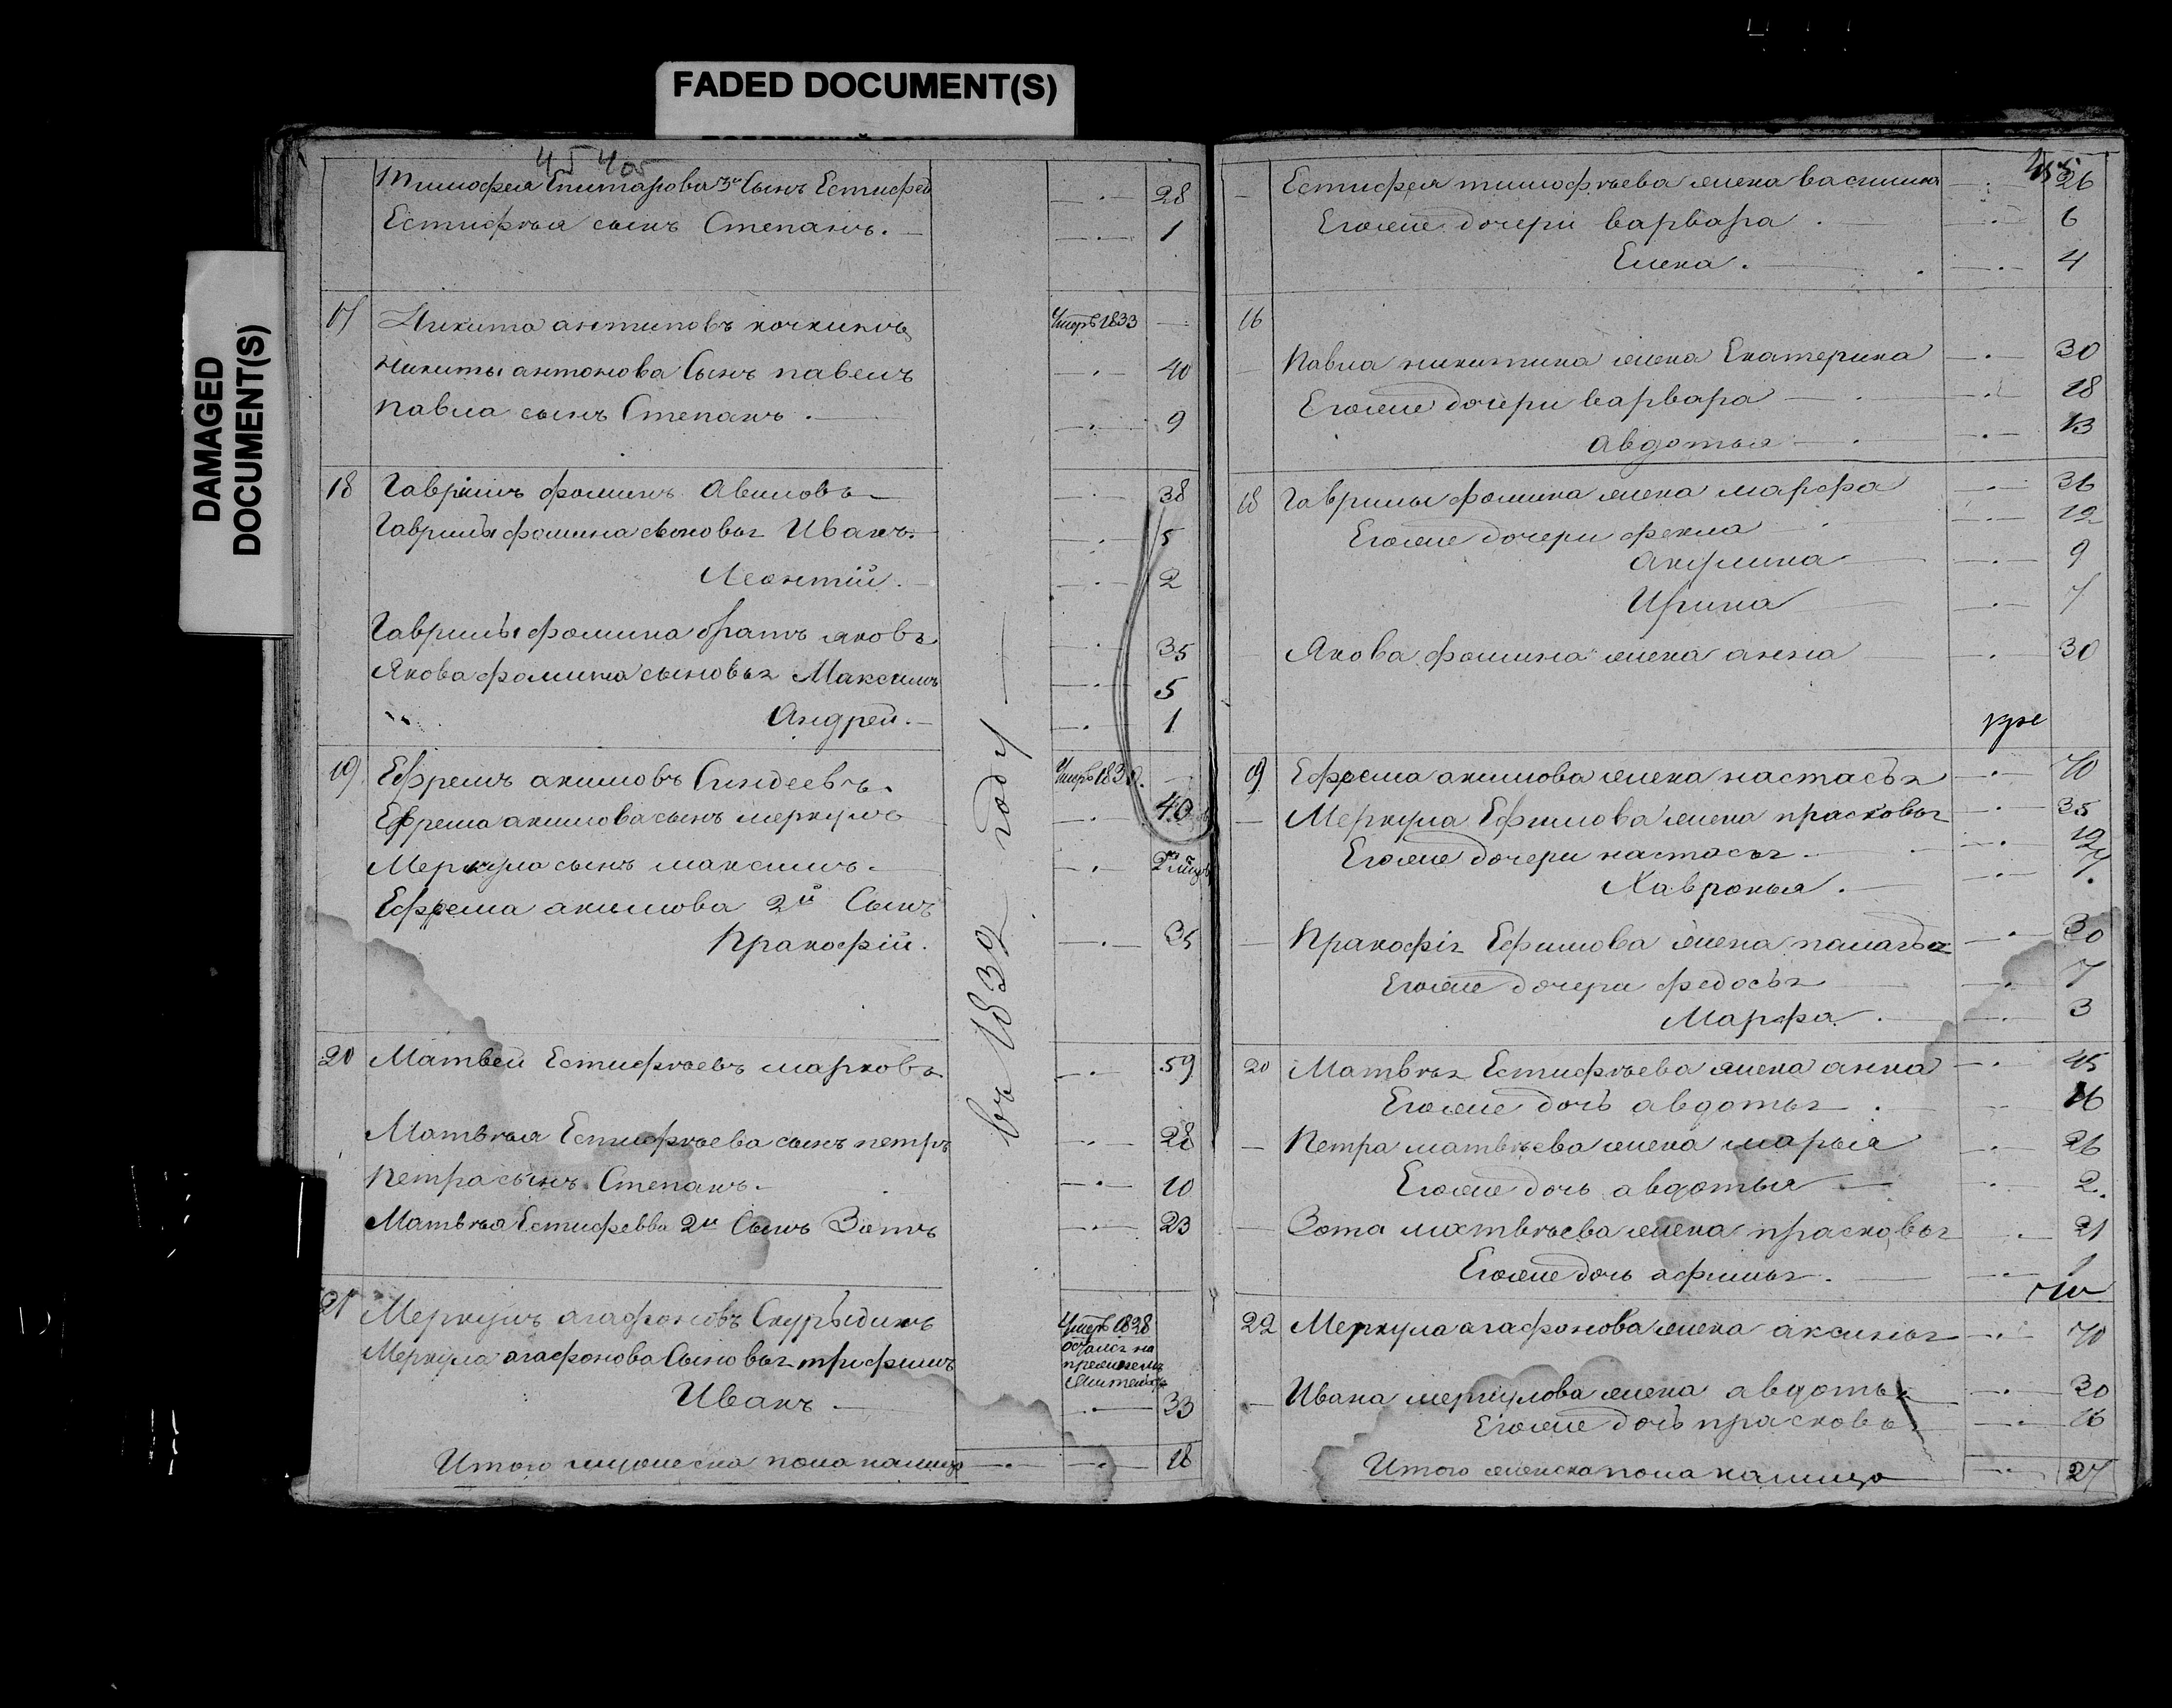 FADED DOCUMENT(S)
DAMAGED
DOCUMENT(S)
45 405
Тимофея Епитарова 3й Сынъ Естифей
28
Естифѣя сынъ Степанъ.
1
17
Никита антиповъ кочкинъ
Умеръ 1833
Никиты антонова Сынъ павелъ
40
павла сынъ Степанъ.
9
18 Гаврилъ фоминъ Авиловъ
38
Гаврилы фомина сыновья Иванъ.
5
Леонтiй.
2
Гаврилы фомина братъ яковъ
35
Якова фомина сыновья Максимъ
5
Андрей.
1
19 Ефремъ акимовъ Синдеевъ.
Умеръ 183
Ефрема акимова сынъ меркулъ
40
Меркула сынъ максимъ.
2
Ефрема акимова 2й Сынъ
Пракофiй.
35
въ 1832 году
20 Матвей Естифѣевъ марковъ
59
Матвѣя Естифѣева сынъ петръ
28
Петра сынъ Степанъ.
10
Матвѣя Естифевва 2й Сынъ Зотъ
23
21 Меркулъ агафоновъ Скурыдинъ
Умеръ 1828
Меркула агафонова Сыновья трифимъ
остался на
прежнемъ
жительстве
Иванъ
33
Итого мужеска пола налицо
18
Естифея тимофѣева жена василиса
26
Егоже дочери варвара
6
Елена.
4
16
Павла никитина жена Екатерина
30
Егоже дочери варвара
18
авдотья
13
18 Гаврилы фомина жена марфа
36
Егоже дочери фекла
12
Акулина
9
Ирина
7
Якова фомина жена анна
30
19 Ефрема акимова жена настасья
70
Меркула Ефимова жена прасковья
35
Егоже дочери настасья.
12
Хавронья.
7.
Пракофiя Ефимова жена палагья
30
Егоже дочери федосья
7
Марфа.
3
20 Матвѣя Естифѣева жена анна
45
Егоже дочь авдотья.
16
Петра матвѣева жена марья
26
Егоже дочь авдотья
2.
Зота матвѣева жена прасковья
21
Егоже дочь афимья.
1
22 Меркула агафонова жена аксинья
70
Ивана меркулова жена авдотья
30
Егоже дочь прасковья
16
Итого женска пола налицо
27